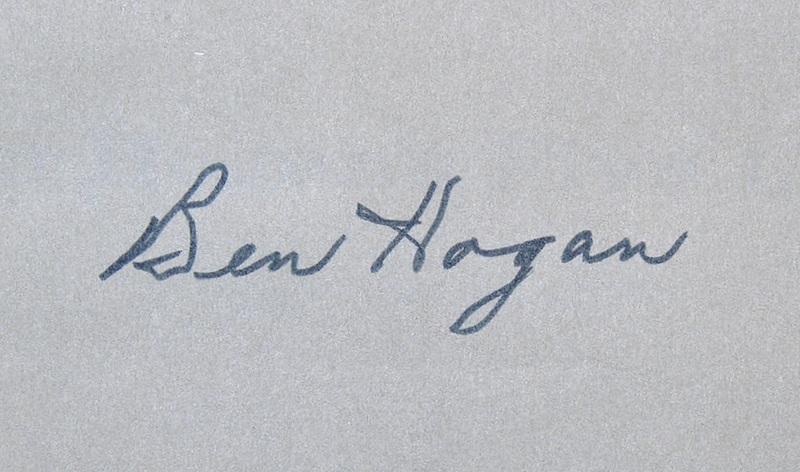 Ben Hogan